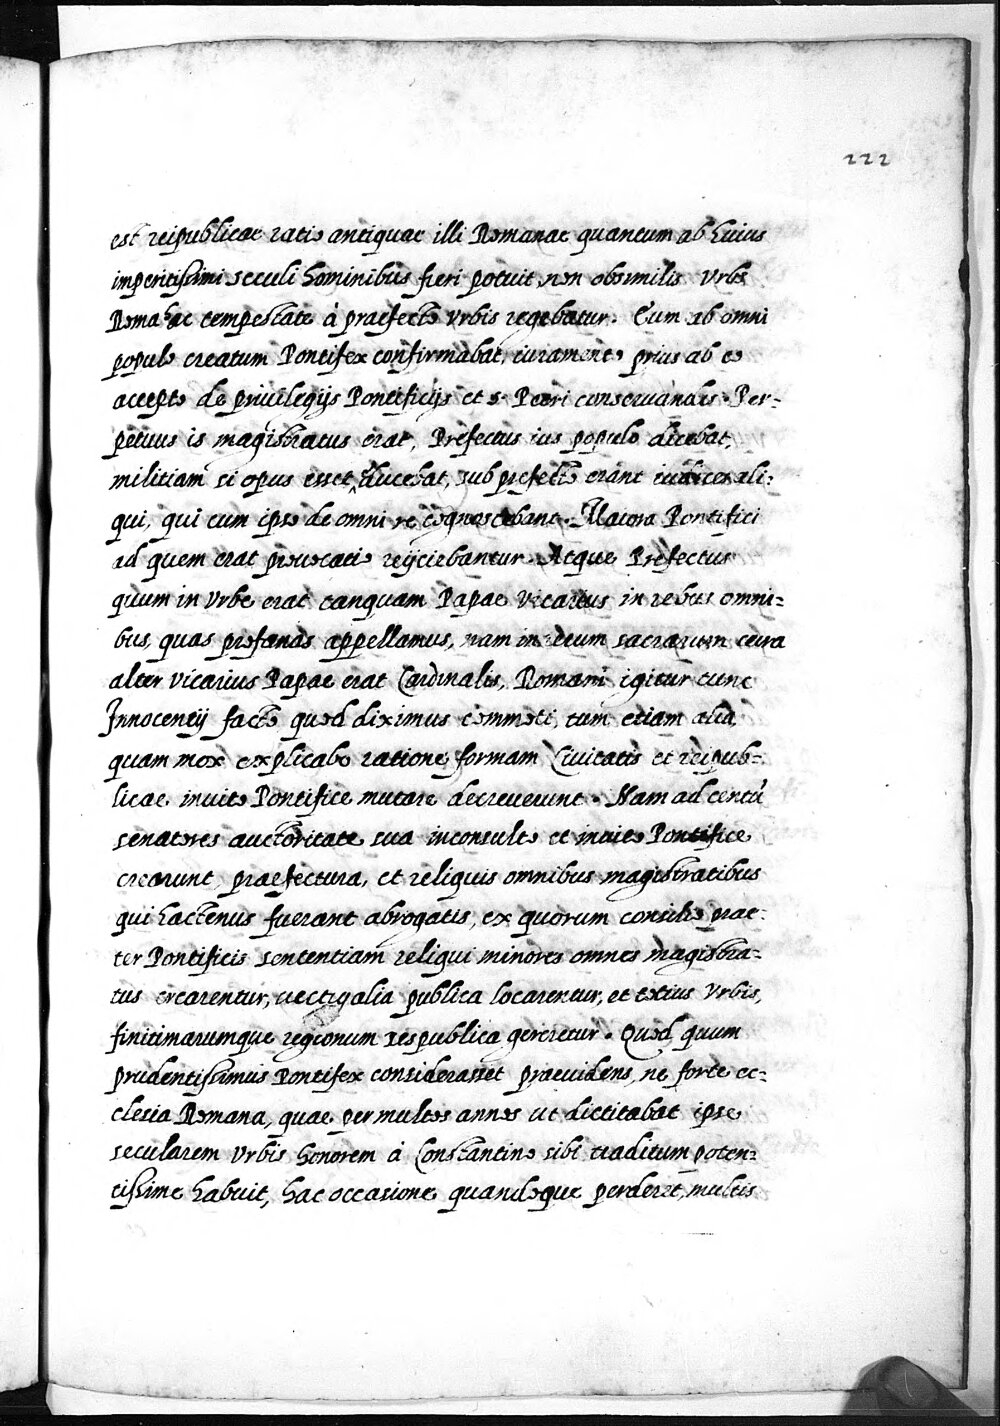 222
est reipublicae ratio antiquae illi Romanae quantum ab huius
imperitissimi seculi hominibus fieri potuit, non obsimilis Urbs
Roma hac tempestate à praefecto Urbis regebatur. Eum ab omni
populo creatum Pontifex confirmabat, iuramento prius ab eo
accepto de priuilegijs Pontificijs et s. Petri conseruandis. Per-
petuus is magistratus erat, Prefectus ius populo dicebat,
militiam si opus esset, ducebat, sub prefecto erant iudices ali-
qui, qui cum ipso de omni re cognoscebant. Maiora Pontifici
ad quem erat prouocatio reijciebantur. Atque Prefectus
quum in Urbe erat tanquam Papae Vicarius in rebus omni=
bus, quas profanas appellamus, nam in rerum sacrarum cura
alter vicarius Papae erat Cardinalis, Romani igitur tunc
Innocentij facto quod diximus commoti, tum etiam alia
quam mox explicabo ratione, formam Ciuitatis et reipub=
licae, inuito Pontifice mutare decreuerunt. Nam ad centū
senatores auctoritate sua inconsulto et inuito Pontifice
crearunt, praefectura, et reliquis omnibus magistratibus
qui hactenus fuerant abrogatis, ex quorum consilio prae-
ter Pontificis sententiam reliqui minores omnes magistra=
tus crearentur, uectigalia publica locarentur, et totius Urbis,
finitimarumque regionum respublica gereretur. Quod quum
prudentissimus Pontifex considerasset praeuidens, ne forte ec-
clesia Romana, quae per multos annos ut dictitabat ipse
secularem Urbis honorem à Constantino sibi traditum poten=
tissime habuit, hac occasione quandoque perderet, multis